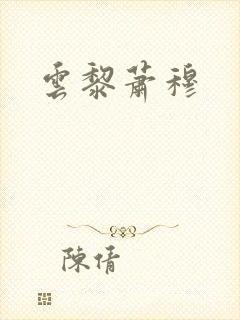 雲黎蕭穆
陳倩